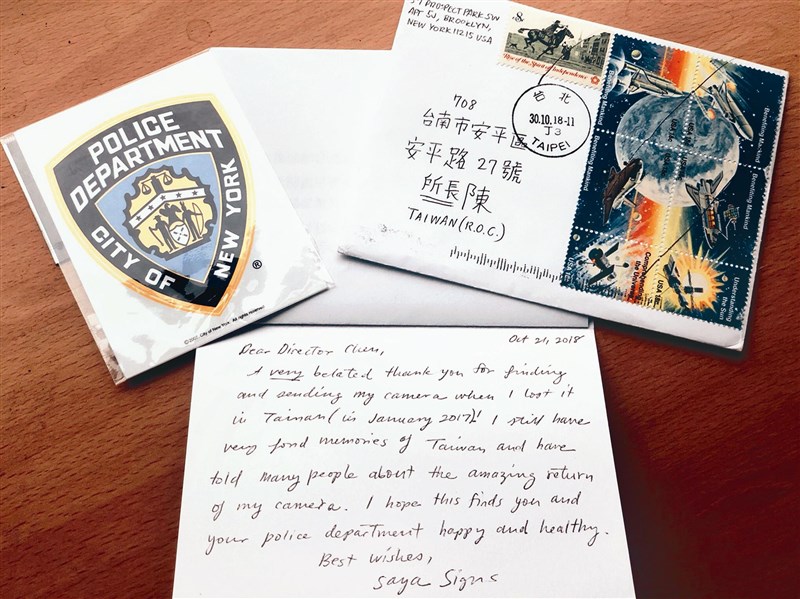 POLICE
DEPARTMENT
CITY OF
NEW YORK
®
City of New York. All rights reserved.
PROSPECT PARK SW
APT 5J, BROOKLYN,
NEW YORK 11215 USA
8¢
Rise of the Spirit of Independence
台北
30.10.18-11
J3
TAIPEI
708
台南市安平區
安平路27號
所長陳
TAIWAN (R.O.C.)
Benefiting Mankind
Benefiting Mankind
Benefiting Mankind
Benefiting Mankind
Comprehending
the Universe
Understanding
the Sun
Oct 21, 2018
Dear Director Chen,
A very belated thank you for finding
and sending my camera when I lost it
in Tainan (in January 2017)! I still have
very fond memories of Taiwan and have
told many people about the amazing return
of my camera. I hope this finds you and
your police department happy and healthy.
Best wishes,
Saya